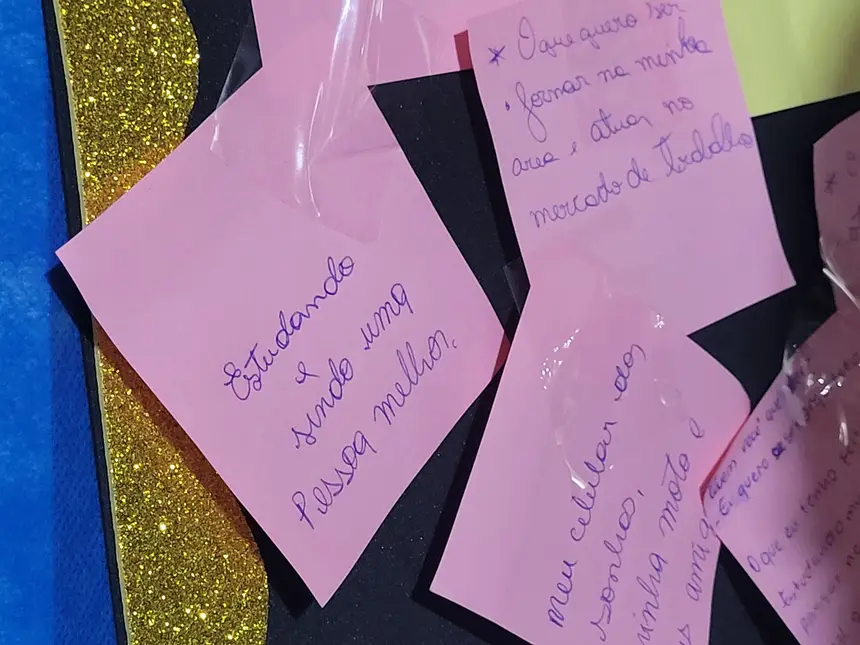 * O que quero ser
. formar na minha
area, atuar no
mercado de trabalho
Estudando
e
sindo uma
Pessoa melhor.
meu celular dos
sonhos,
inha moto e
amig
quem você
Eu quero ser
O que eu tenho
Estudando